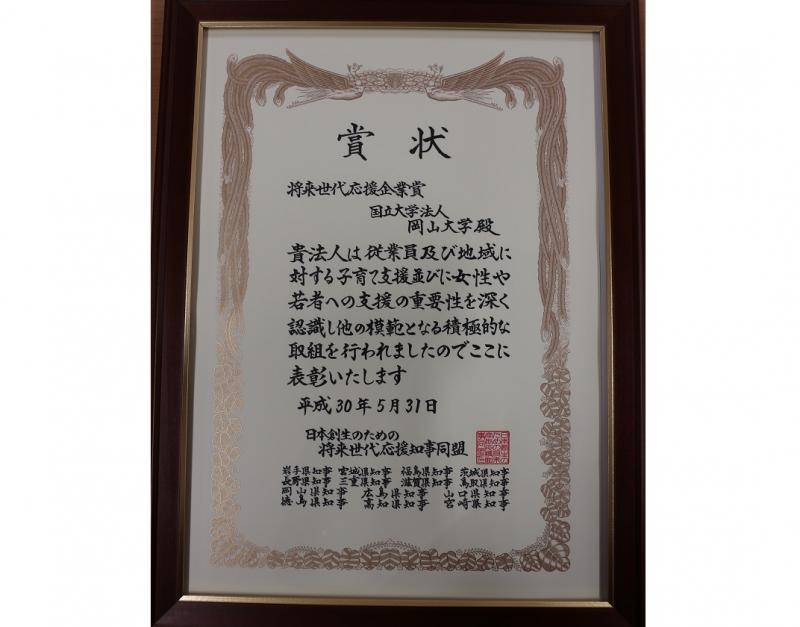 賞 状
将来世代応援企業賞
国立大学法人
岡山大学殿
貴法人は従業員及び地域に
対する子育て支援並びに女性や
若者への支援の重要性を深く
認識し他の模範となる積極的な
取組を行われましたのでここに
表彰いたします
平成30年5月31日
日本創生のための
将来世代応援知事同盟
岩手県知事 宮城県知事 福島県知事 茨城県知事
長野県知事 三重県知事 滋賀県知事 鳥取県知事
岡山県知事 広島県知事 山口県知事
徳島県知事 高知県知事 宮崎県知事